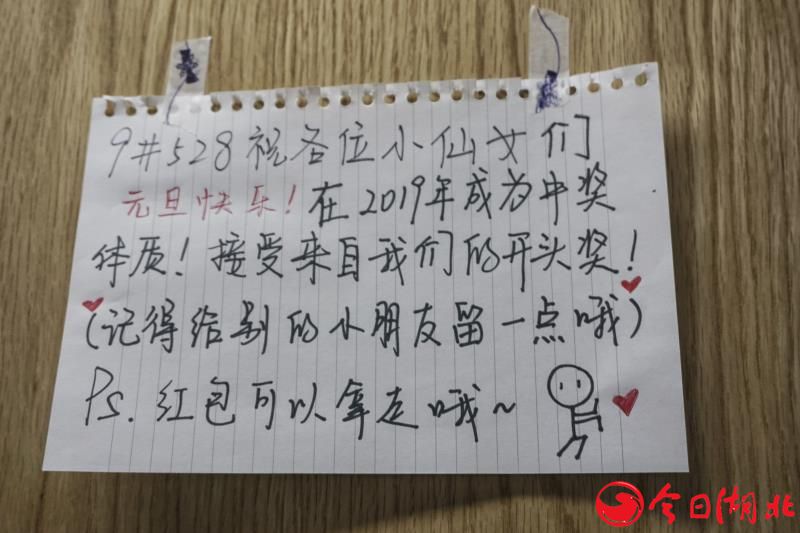 9#528祝各位小仙女们
元旦快乐!在2019年成为中奖
体质!接受来自我们的开头奖!
(记得给别的小朋友留一点哦)
Ps.红包可以拿走哦~
今日湖北